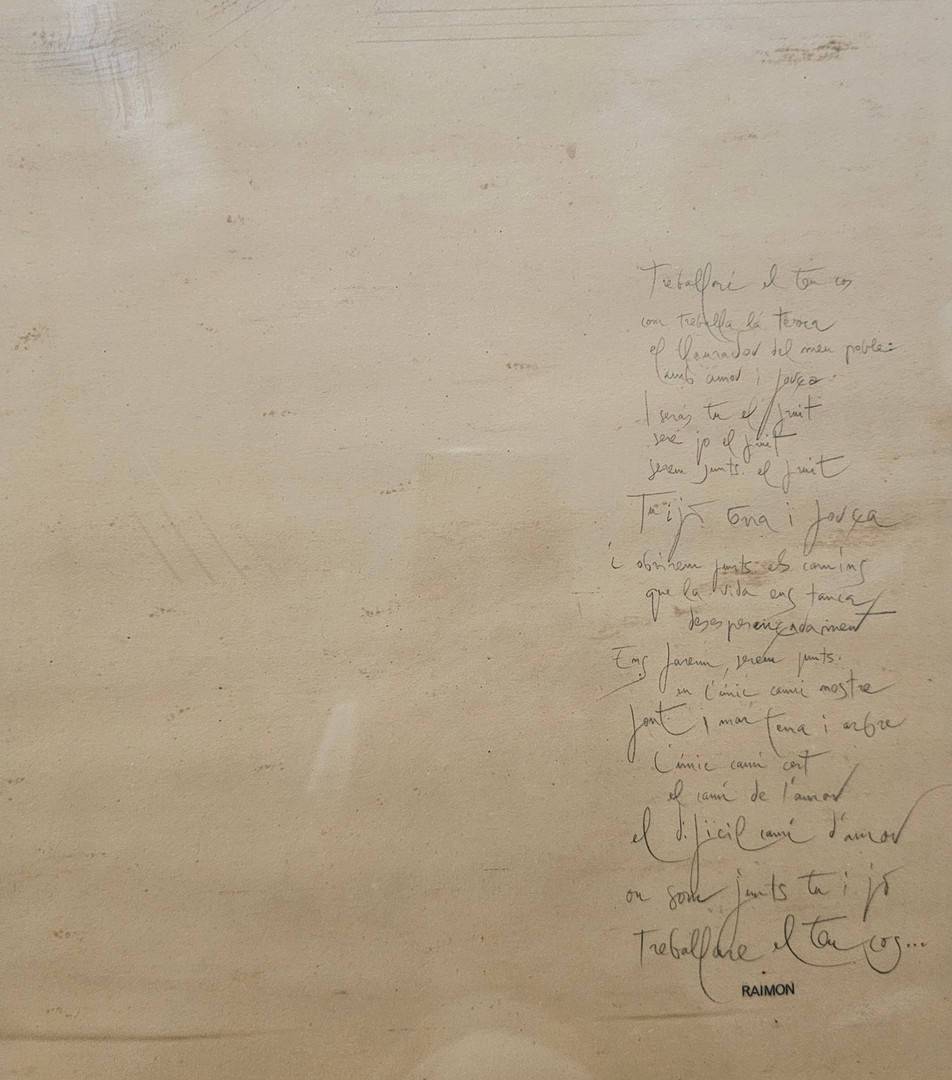 Treballaré el teu cos
com treballa la terra
el llaurador del meu poble:
amb amor i força.
I seràs tu el fruit
seré jo el fruit
serem junts el fruit
Tu i jo terra i força
i obrirem junts els camins
que la vida ens tanca
desesperançadament
Ens farem, serem junts.
en l'únic camí nostre
font i mar terra i arbre
l'únic camí cert
el camí de l'amor
el difícil camí d'amor
on som junts tu i jo
Treballaré el teu cos...
RAIMON